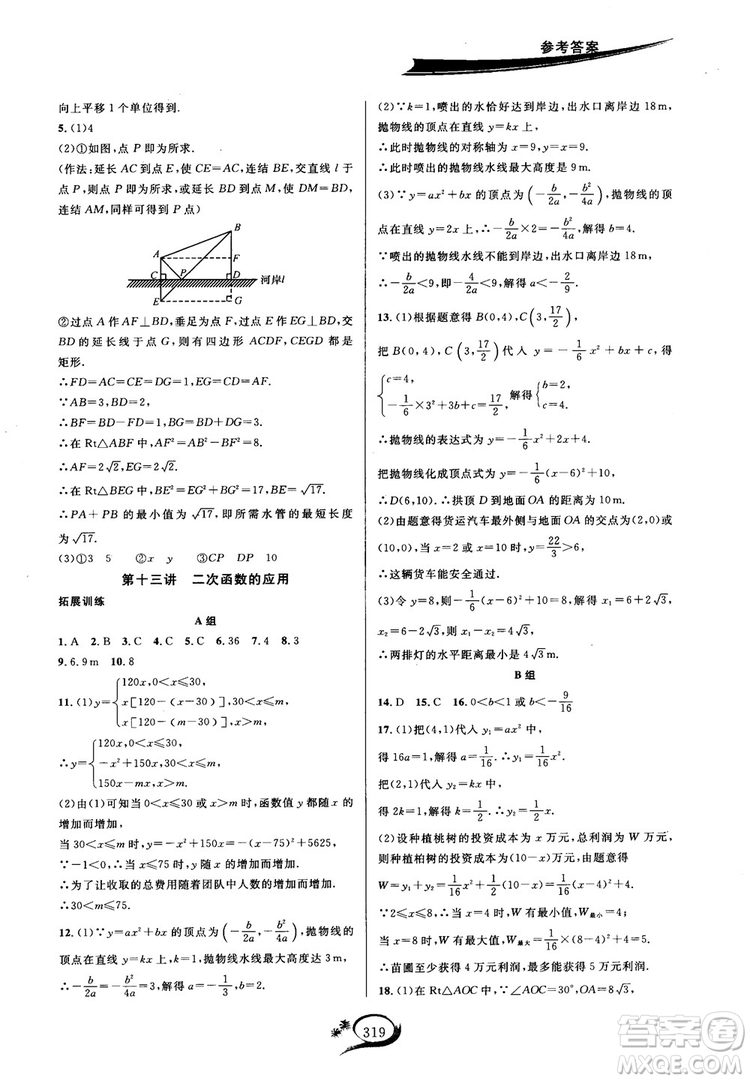 参考答案
向上平移1个单位得到.
5.(1)4
(2)①如图,点P即为所求.
(作法:延长AC到点E,使CE=AC,连结BE,交直线l于
点P,则点P即为所求,或延长BD到点M,使DM=BD,
连结AM,同样可得到P点)
B
A F
C P D 河岸l
E G
②过点A作AF⊥BD,垂足为点F,过点E作EG⊥BD,交
BD的延长线于点G,则有四边形ACDF,CEGD都是
矩形.
∴FD=AC=CE=DG,EG=CD=AF.
∵AB=3,BD=2,
∴BF=BD-FD=BD-AC=1.
∴在Rt△ABF中,AF²=AB²-BF²=8.
∴AF=2√2,EG=2√2.
∴在Rt△BEG中,BE²=EG²+BG²,BE=√17.
∴PA+PB的最小值为√17,即所需水管的最短长度
为√17.
(3)①3 5 ②x y ③CP DP 10
第十三讲 二次函数的应用
拓展训练
A组
1.A 2.B 3.C 4.C 5.C 6.36 7.4 8.3
9.6.9m 10.8
11.(1)y={120x,0<x≤30,
x[120-(x-30)],30<x≤m,
x[120-(m-30)],x>m,
∴y={120x,0<x≤30,
-x²+150x,30<x≤m,
150x-mx,x>m.
(2)由(1)可知当0<x≤30或x>m,函数值y都随x的
增加而增加,
当30<x≤m时,y=-x²+150x=-(x-75)²+5625,
∵-1<0,∴x≤75时,y随着x的增加而增加.
∴为了让收取的总费用随着团队中人数的增加而增加,
∴30<m≤75.
12.(1)∵y=ax²+bx的顶点为(-b/2a,-b²/4a),抛物线的
顶点在直线y=kx上,k=1,抛物线水线最大高度达3m,
∴-b/2a=-b²/4a=3.解得a=-1/3,b=2.
(2)∵k=1,喷出的水恰好达到岸边,出水口离岸边18m,
抛物线的顶点在直线y=kx上,
∴此时抛物线的对称轴为x=9,y=x=9,
∴此时喷出的抛物线水线最大高度是9m.
(3)∵y=ax²+bx的顶点为(-b/2a,-b²/4a),抛物线的顶
点在直线y=2x上,∴-b/2a×2=-b²/4a,解得b=4,
∵喷出的抛物线水线不能到岸边,出水口离岸边18m,
∴-b/2a<9,即-4/2a<9,解得a<-2/9.
13.(1)根据题意得B(0,4),C(3,17/2),
把B(0,4),C(3,17/2)代入y=-1/6x²+bx+c得
{c=4,
-1/6×3²+3b+c=17/2,解得{b=2,
c=4.
∴抛物线的表达式为y=-1/6x²+2x+4.
把抛物线化成顶点式为y=-1/6(x-6)²+10,
∴D(6,10).∴拱顶D到地面OA的距离为10m.
(2)由题意得货运汽车最外侧与地面OA的交点为(2,0)或
(10,0),当x=2或x=10时,y=22/3>6,
∴这辆货车能安全通过.
(3)令y=8,则-1/6(x-6)²+10=8,解得x₁=6+2√3,
x₂=6-2√3,则x₁-x₂=4√3.
∴两排灯的水平距离最小是4√3m.
B组
14.D 15.C 16.0<b<1或b<-9/16
17.(1)把(4,1)代入y₁=ax²中,
得16a=1,解得a=1/16.∴y₁=1/16x².
把(2,1)代入y₂=kx中,
得2k=1,解得k=1/2.∴y₂=1/2x.
(2)设种植桃树的投资成本为x万元,总利润为W万元,
则种植柏树的投资成本为(10-x)万元.由题意得
W=y₁+y₂=1/16x²+1/2(10-x)=1/16(x-4)²+4,
∵2≤x≤8,∴当x=4时,W有最小值,W最小=4,
当x=8时,W有最大值,W最大=1/16(8-4)²+4=5.
∴苗圃至少获得4万元利润,最多能获得5万元利润.
18.(1)在Rt△AOC中,∵∠AOC=30°,OA=8√3,
319
答案圈
MXQE.COM